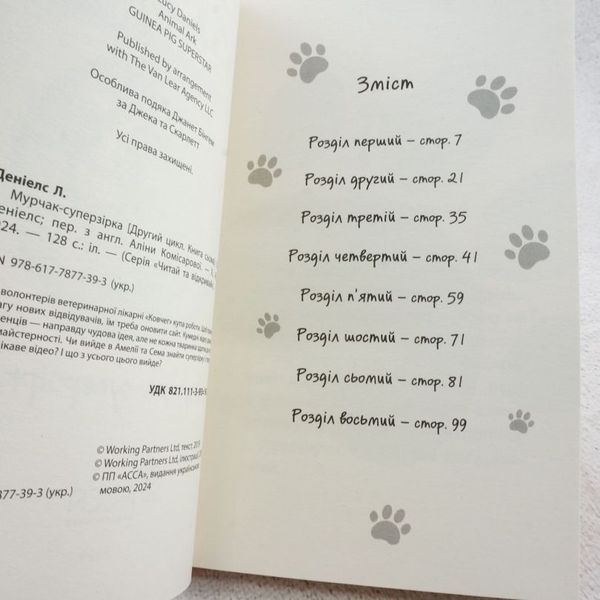 Lucy Daniels
Animal Ark
GUINEA PIG SUPERSTAR
Published by arrangement
with The Van Lear Agency LLC
Особлива подяка Джанет Бінгем
за Джека та Скарлетт
Усі права захищені.
Деніелс Л.
Мурчак-суперзірка [Другий цикл. Книга
Деніелс; пер. з англ. Аліни Комісарової. —
2024. — 128 с.: іл. — (Серія «Читай та відкривай
978-617-7877-39-3 (укр.)
волонтерів ветеринарної лікарні «Ковчег» купа роботи.
нових відвідувачів, їм треба оновити сайт.
— направду чудова ідея, але не кожна тварина
майстерності. Чи вийде в Амелії та Сема знайти
відео? І що з усього цього вийде?
УДК 821.111-3-93
© Working Partners Ltd, текст,
© Working Partners Ltd,
© ПП «АССА», видання
мовою, 2024
877-39-3 (укр.)
Зміст
Розділ перший – стор. 7
Розділ другий – стор. 21
Розділ третій – стор. 35
Розділ четвертий – стор. 41
Розділ п'ятий – стор. 59
Розділ шостий – стор. 71
Розділ сьомий – стор. 81
Розділ восьмий – стор. 99